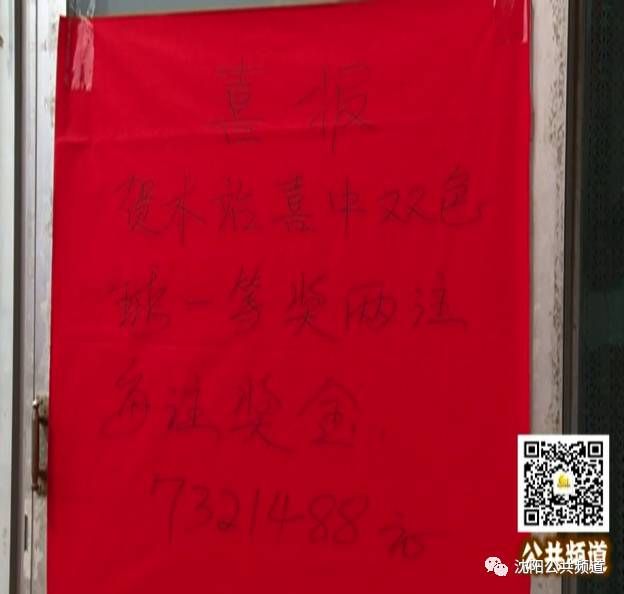 喜报
贺本站喜中双色
球一等奖两注
每注奖金.
7321488元
公共频道
沈阳公共频道